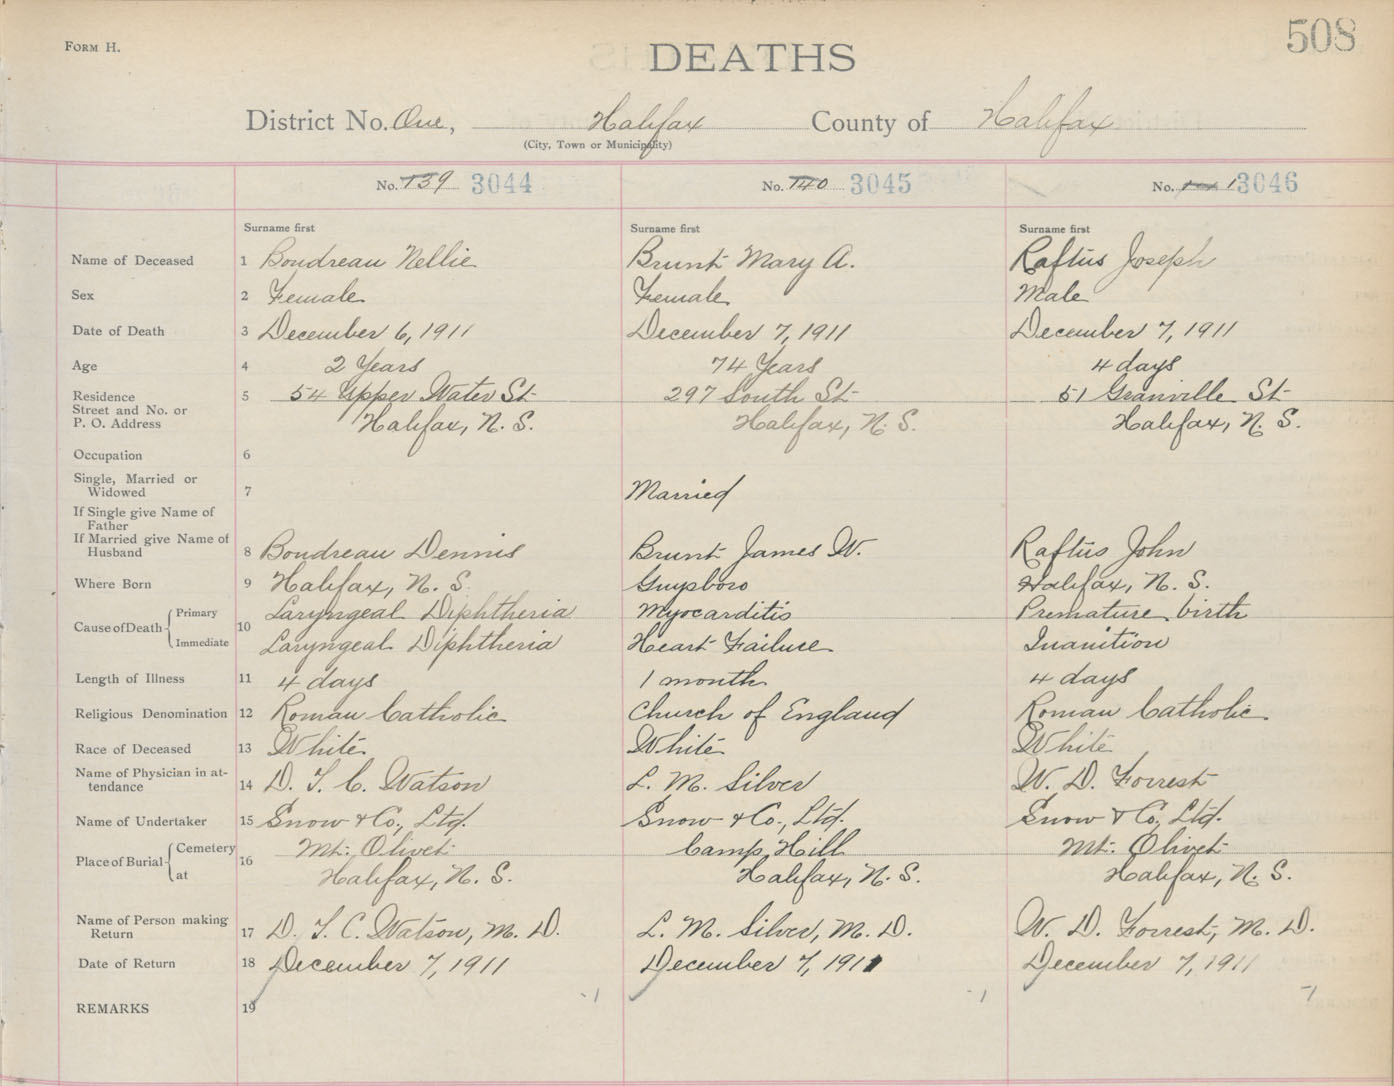 508
FORM H.
DEATHS
District No. One, Halifax County of Halifax
(City, Town or Municipality)
No. 139 3044 No. 140 3045 No. 3046
Surname first Surname first Surname first
Name of Deceased 1 Boudreau Nellie Brunt Mary A. Raftus Joseph
Sex 2 Female Female Male
Date of Death 3 December 6, 1911 December 7, 1911 December 7, 1911
Age 4 2 Years 74 Years 4 days
Residence 5 54 Upper Water St 297 South St 51 Granville St
Street and No. or
P. O. Address Halifax, N. S. Halifax, N. S. Halifax, N. S.
Occupation 6
Single, Married or
Widowed 7 Married
If Single give Name of
Father
If Married give Name of
Husband 8 Boudreau Dennis Brunt James W. Raftus John
Where Born 9 Halifax, N. S. Guysboro Halifax, N. S.
Cause of Death Primary 10 Laryngeal Diphtheria Myocarditis Premature birth
Immediate Laryngeal Diphtheria Heart Failure Inanition
Length of Illness 11 4 days 1 month 4 days
Religious Denomination 12 Roman Catholic Church of England Roman Catholic
Race of Deceased 13 White White White
Name of Physician in at-
tendance 14 D. T. C. Watson L. M. Silver W. D. Forrest
Name of Undertaker 15 Snow & Co., Ltd. Snow & Co., Ltd. Snow & Co, Ltd.
Place of Burial Cemetery 16 Mt. Olivet Camp Hill Mt. Olivet
at Halifax, N. S. Halifax, N. S. Halifax, N. S.
Name of Person making
Return 17 D. T. C. Watson, M. D. L. M. Silver, M. D. W. D. Forrest, M. D.
Date of Return 18 December 7, 1911 December 7, 1911 December 7, 1911
REMARKS 19